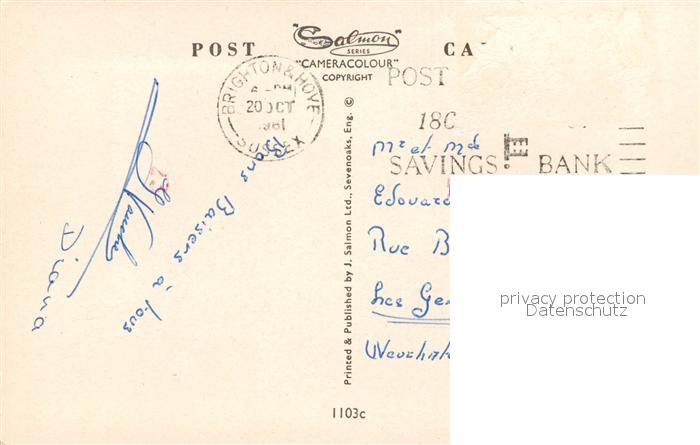 POST CA
"Salmon
SERIES
"CAMERACOLOUR"
COPYRIGHT
BRIGHTON & HOVE
20 OCT
1961
SUSSEX
POST
SAVINGS BANK
Bons Baisers à tous
Diana
Mr et Md
Edouard
Rue B
Les Ge
privacy protection
Datenschutz
Printed & Published by J. Salmon Ltd., Sevenoaks, Eng. ©
1103c